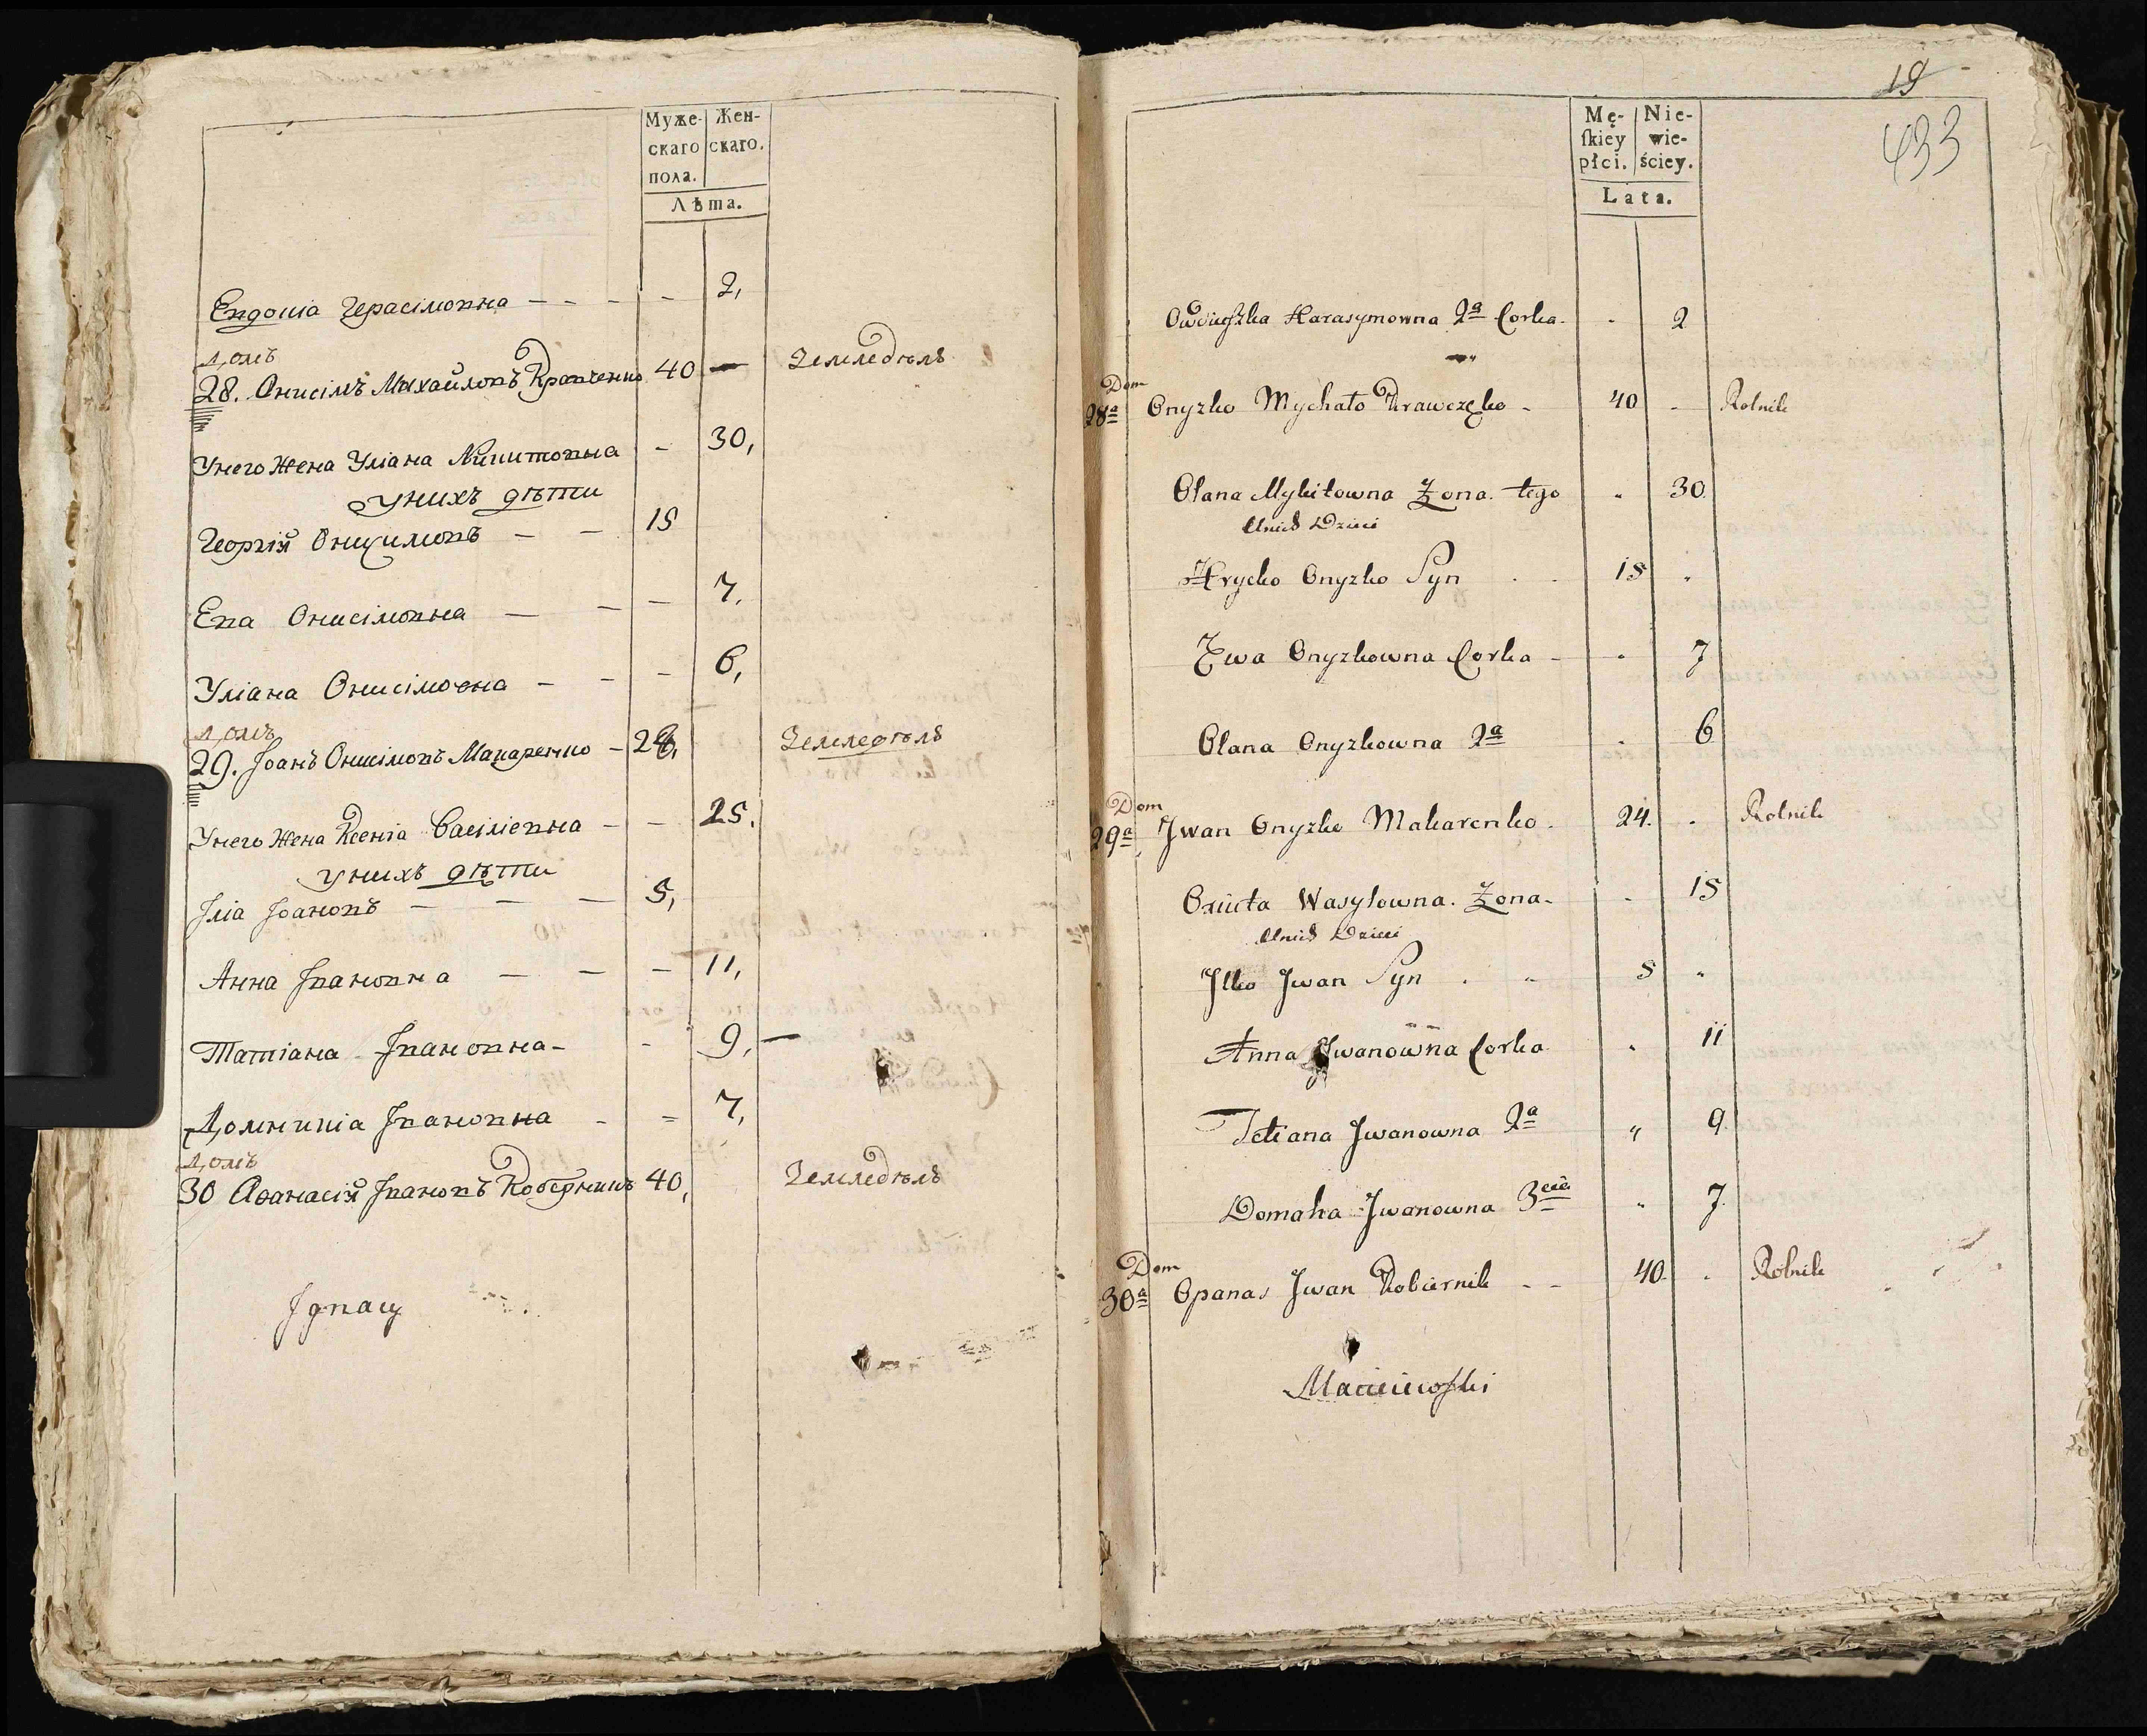 Муже- Жен-
скаго скаго.
пола.
Лѣта.
Евдокіа Герасімовна - - - - 2,
Домъ
28. Онисімъ Михайловъ Кравченко 40 — Земледѣлъ
Унего Жена Уліана Никитовна - 30,
унихъ дѣти
Георгій Онисимовъ — — 15
Ева Онисімовна — — — 7,
Уліана Онисімовна - - - 6,
Домъ
29. Іоанъ Онисімовъ Макаренко - Земледѣлъ
Унего Жена Ксеніа Васіліевна - - 25.
унихъ дѣти
Іліа Іоановъ — — — 5,
Анна Івановна — — — 11,
Татіана Івановна - - 9, —
Домникіа Івановна - = 7,
Домъ
30 Аѳанасій Івановъ Коберникъ 40, Земледѣлъ
Jgnacy
19
433
Mę- Nie-
ſkiey wie-
płci. ściey.
Lata.
Owdiuszka Harasymowna 2a Corka - - 2
Dom
28a Onyzko Mychało Krawczęko - 40 - Rolnik
Olana Mykitowna Zona tego " 30.
Unich Dzieci
Hrycko Onyzko Syn . . 15 "
Ewa Onyzkowna Corka - - 7
Olana Onyzkowna 2a - 6
Dom
29a Jwan Onyzko Makarenko. 24. - Rolnik
Oxiuta Wasylowna. Zona - - 15
Unich Dzieci
Jlko Jwan Syn . " 5 "
Anna Jwanowna Corka " 11
Tetiana Jwanowna 2a " 9.
Domaha Jwanowna 3cia " 7.
Dom
30a Opanas Jwan Kobiernik - - 40. . Rolnik
Macieiowſki